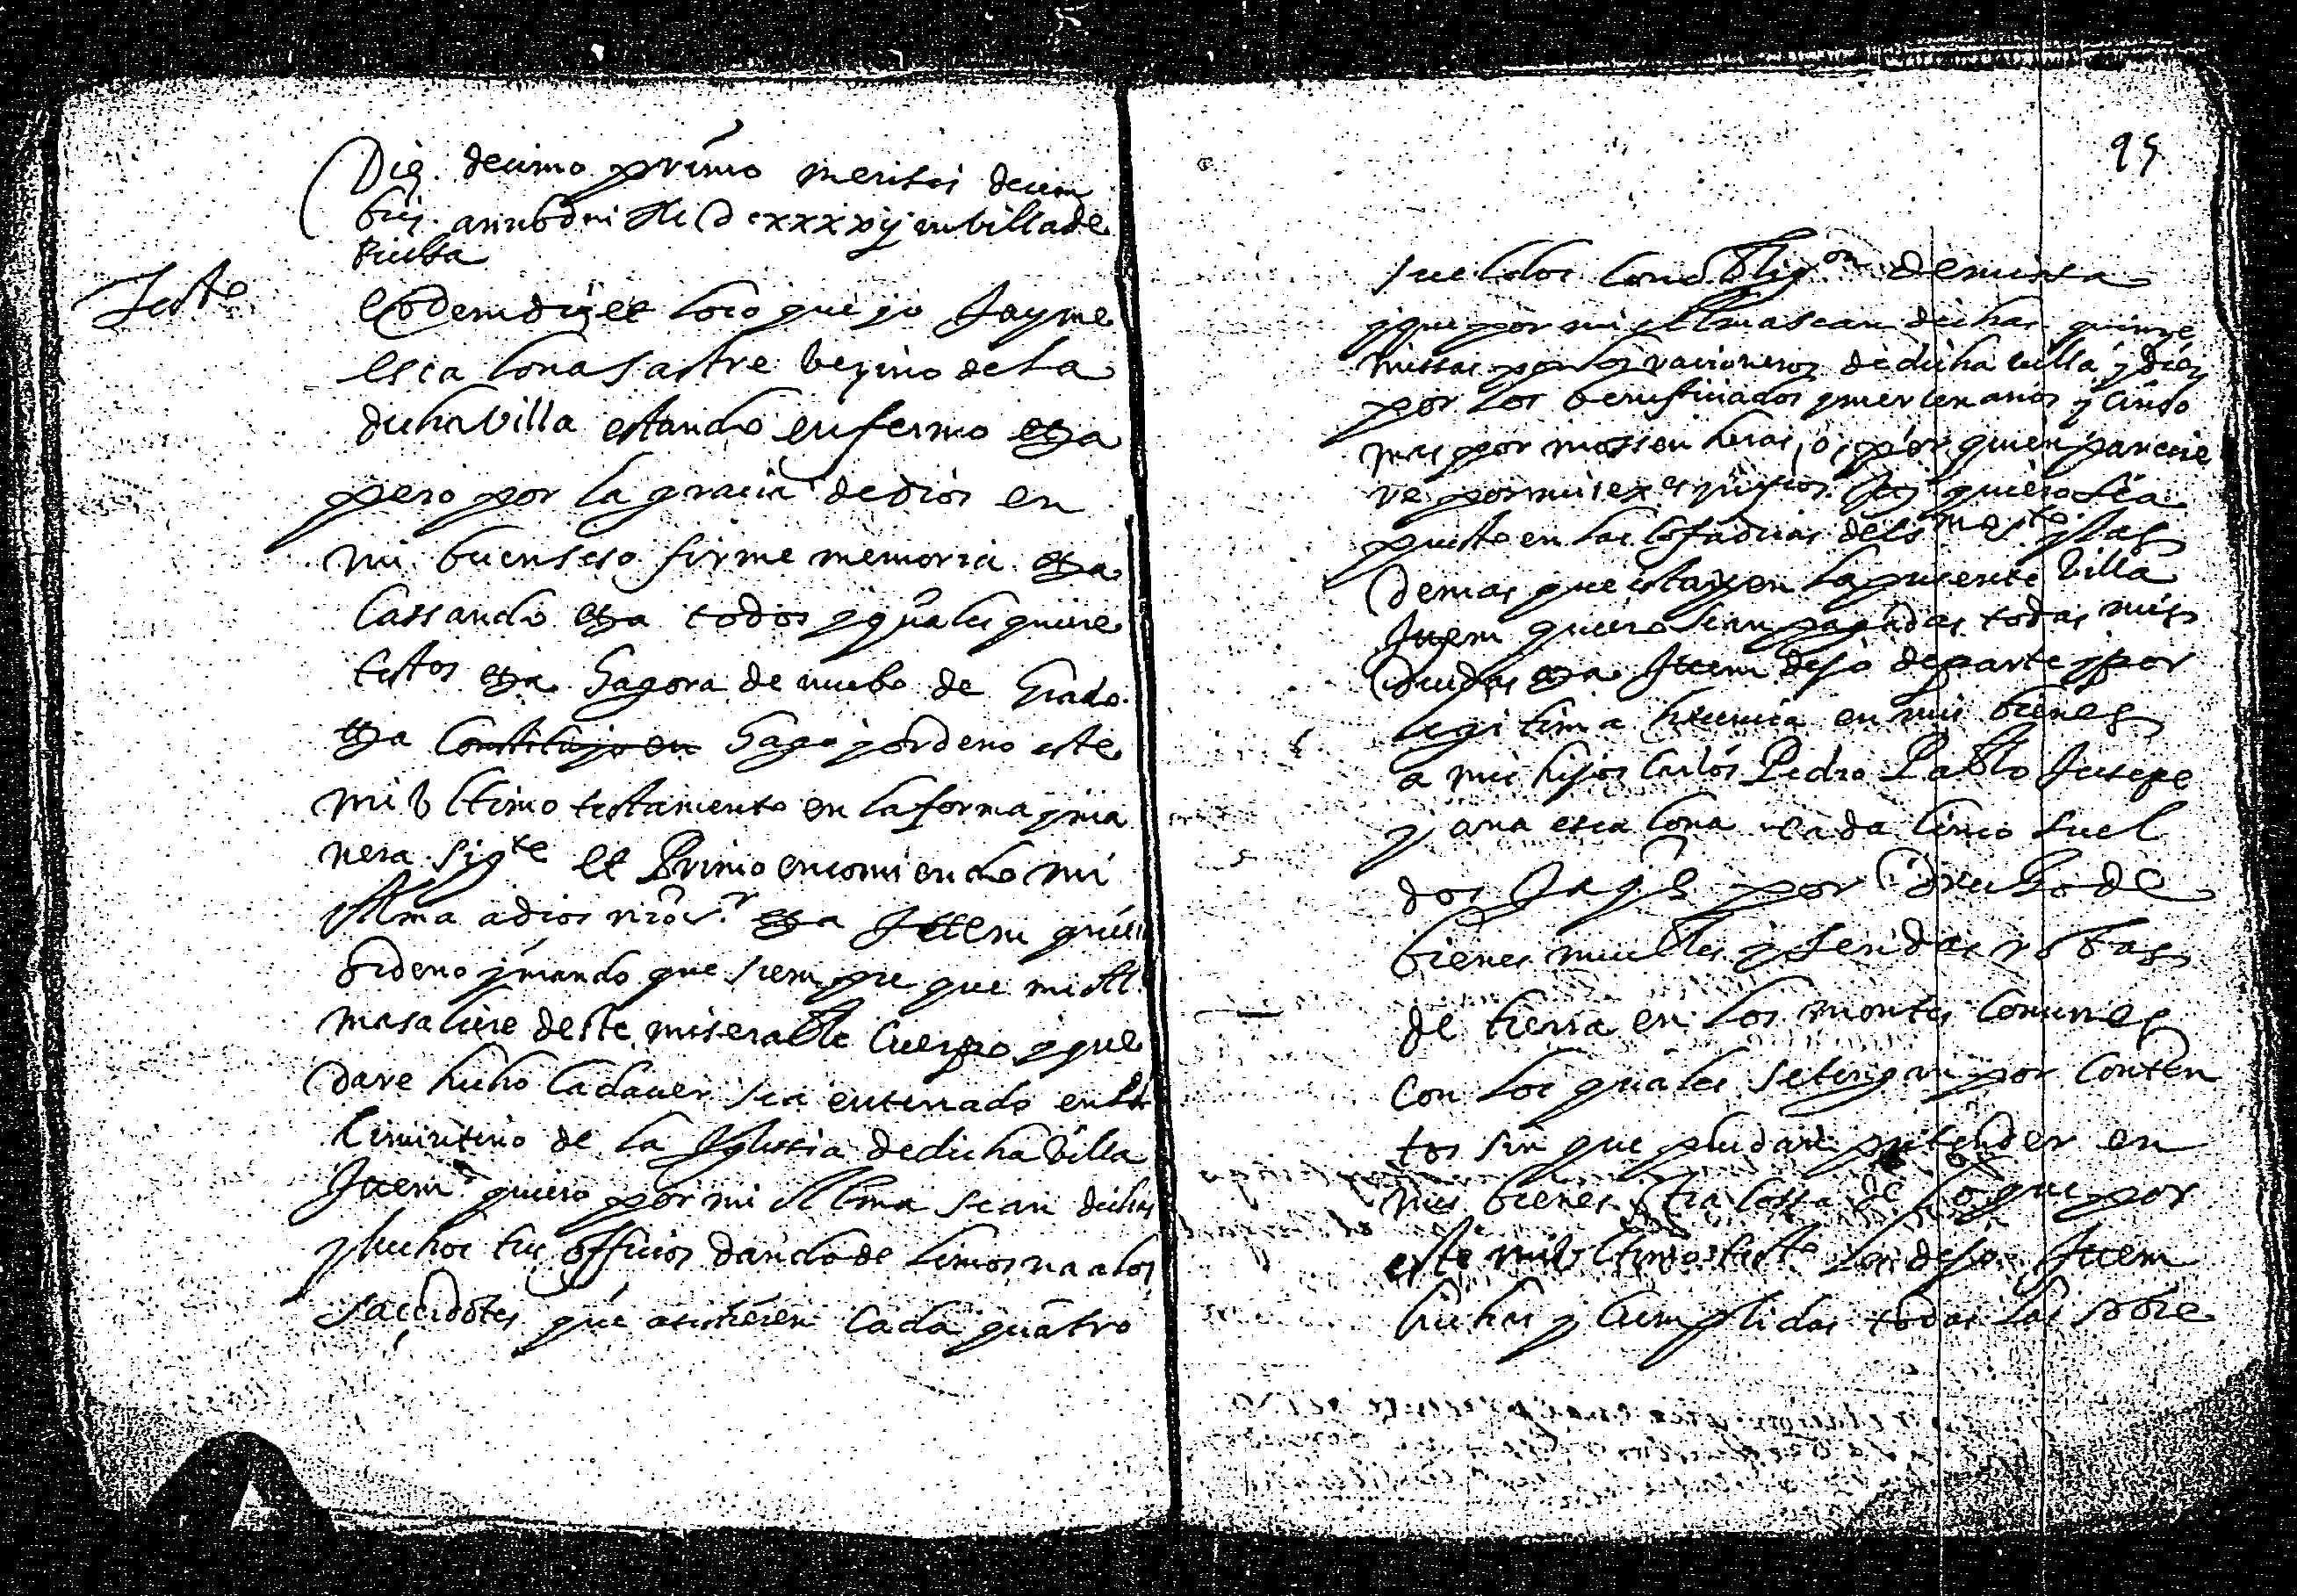 Die decimo primo mensis decem
bris anno dni M DcxxxxVij en billa de
Teste
eodem die et loco que yo Jayme
escalona sastre bezino de la
dicha billa estando enfermo etza
pero por la gracia de dios en
mi buen seso firme memoria etza
cassando etza todos y qualesquiere
testos etza hagora de nuebo de Grado
etza constituyo en hago y ordeno este
mi bltimo testamento en la forma y ma
nera sigte et Primo encomiendo mi
Alma a dios nro sr etza Ittem quiero
ordeno y mando que siempre que mi Al
ma saliere deste miserable cuerpo y que
dare hecho cadauer sea enterrado en el
ciminterio de la Yglesia de dicha billa
Ittem quiero por mi Alma sean dichos
y hechos tres officios dando de limosna a los
sacerdotes que asistieren cada quatro
95
sueldos con obligon de missa
y que por mi Alma sean dichas quinze
missas por los racioneros de dicha uilla y diez
por los beneficiados y mercenarios y cinco
mas por mossen heras, o, por quien parecie
re por mis exes Itten quiero sea
puesto en las cofadrias del s mo y las
demas que estan en la presente billa
Ittem quiero sean pagadas todas mis
deudas etza Ittem dejo de parte y por
legitima herencia en mis bienes
a mis hijos Carlos Pedro Pablo Jusepe
y ana escalona cada cinco suel
dos Jaqs por drecho de
bienes muebles y sendas robas
de tierra en los montes comunes
con los quales se tengan por conten
tos sin que puedan pretender en
mis bienes otra cossa de lo que por
este mi bltimo testto les dejo Ittem
hechas y cumplidas todas las sobre